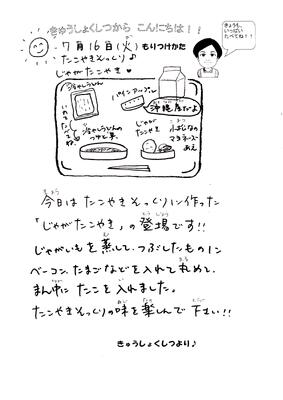 きゅうしょくしつから こんにちは！！
きょうも、
いっぱい
たべてね！！
7月16日(火) もりつけかた
たこやきそっくり♪
じゃがたこやき♥
パインアップル
沖縄産だよ
冷やしうどん
じゃが
たこやき
小松なの
マヨネーズ
あえ
冷やしうどんの
つけじる
きょう
今日は たこやきそっくりに作った
「じゃがたこやき」の 登場です!!
じゃがいもを 蒸して、つぶしたものに
ベーコン、たまごなどを 入れて 丸めて、
まん中に たこを 入れました。
たこやきそっくりの 味を 楽しんで 下さい!!
きゅうしょくしつより♪